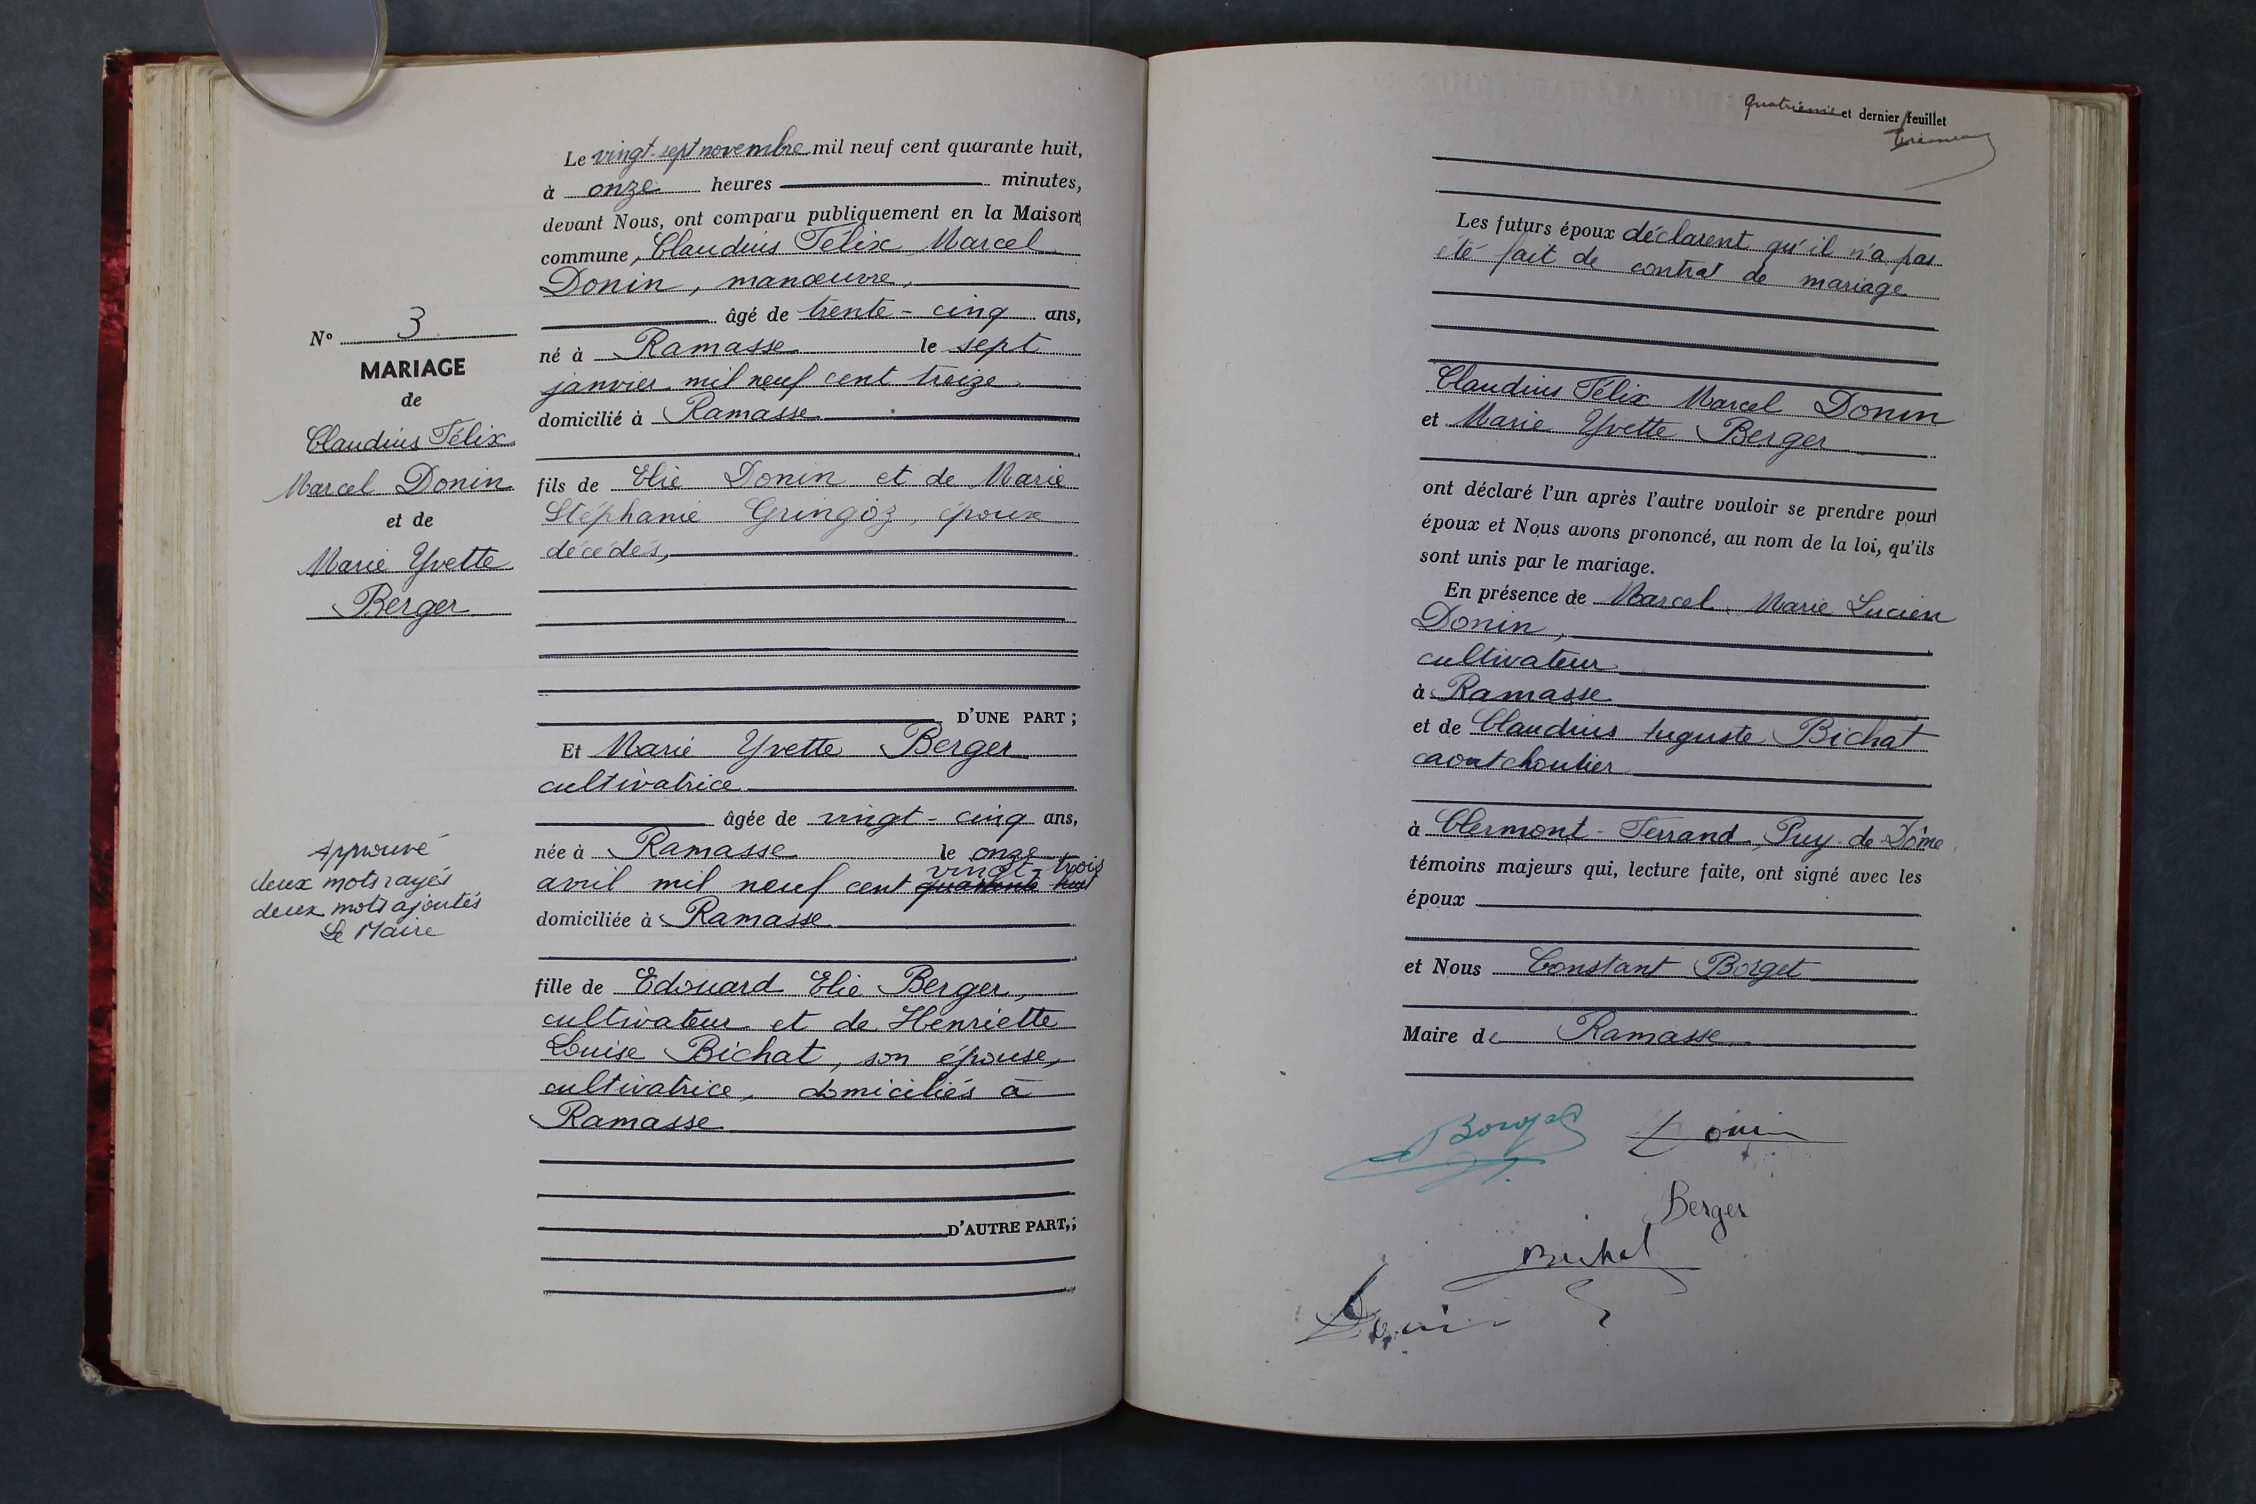 N° 3
MARIAGE
de
Claudius Félix
Marcel Donin
et de
Marie Yvette
Berger
Approuvé
deux mots rayés
deux mots ajoutés
Le Maire
Le vingt-sept novembre mil neuf cent quarante huit,
à onze heures minutes,
devant Nous, ont comparu publiquement en la Maison
commune, Claudius Félix Marcel
Donin, manœuvre,
âgé de trente-cinq ans,
né à Ramasse le sept
janvier mil neuf cent treize
domicilié à Ramasse
fils de Elie Donin et de Marie
Stéphanie Gringoz, époux
décédés,
D'UNE PART ;
Et Marie Yvette Berger
cultivatrice
âgée de vingt-cinq ans,
née à Ramasse le onze
vingt-trois
avril mil neuf cent quarante huit
domiciliée à Ramasse
fille de Edouard Elie Berger,
cultivateur et de Henriette
Louise Bichat, son épouse,
cultivatrice, domiciliés à
Ramasse
D'AUTRE PART,;
Quatrième et dernier feuillet
Les futurs époux déclarent qu'il n'a pas
été fait de contrat de mariage
Claudius Félix Marcel Donin
et Marie Yvette Berger
ont déclaré l'un après l'autre vouloir se prendre pour
époux et Nous avons prononcé, au nom de la loi, qu'ils
sont unis par le mariage.
En présence de Marcel Marie Lucien
Donin,
cultivateur
à Ramasse
et de Claudius Auguste Bichat
caoutchoutier
à Clermont-Ferrand, Puy-de-Dôme,
témoins majeurs qui, lecture faite, ont signé avec les
époux
et Nous Constant Borget
Maire de Ramasse
Borget Donin
Berger
Bichat
Donin